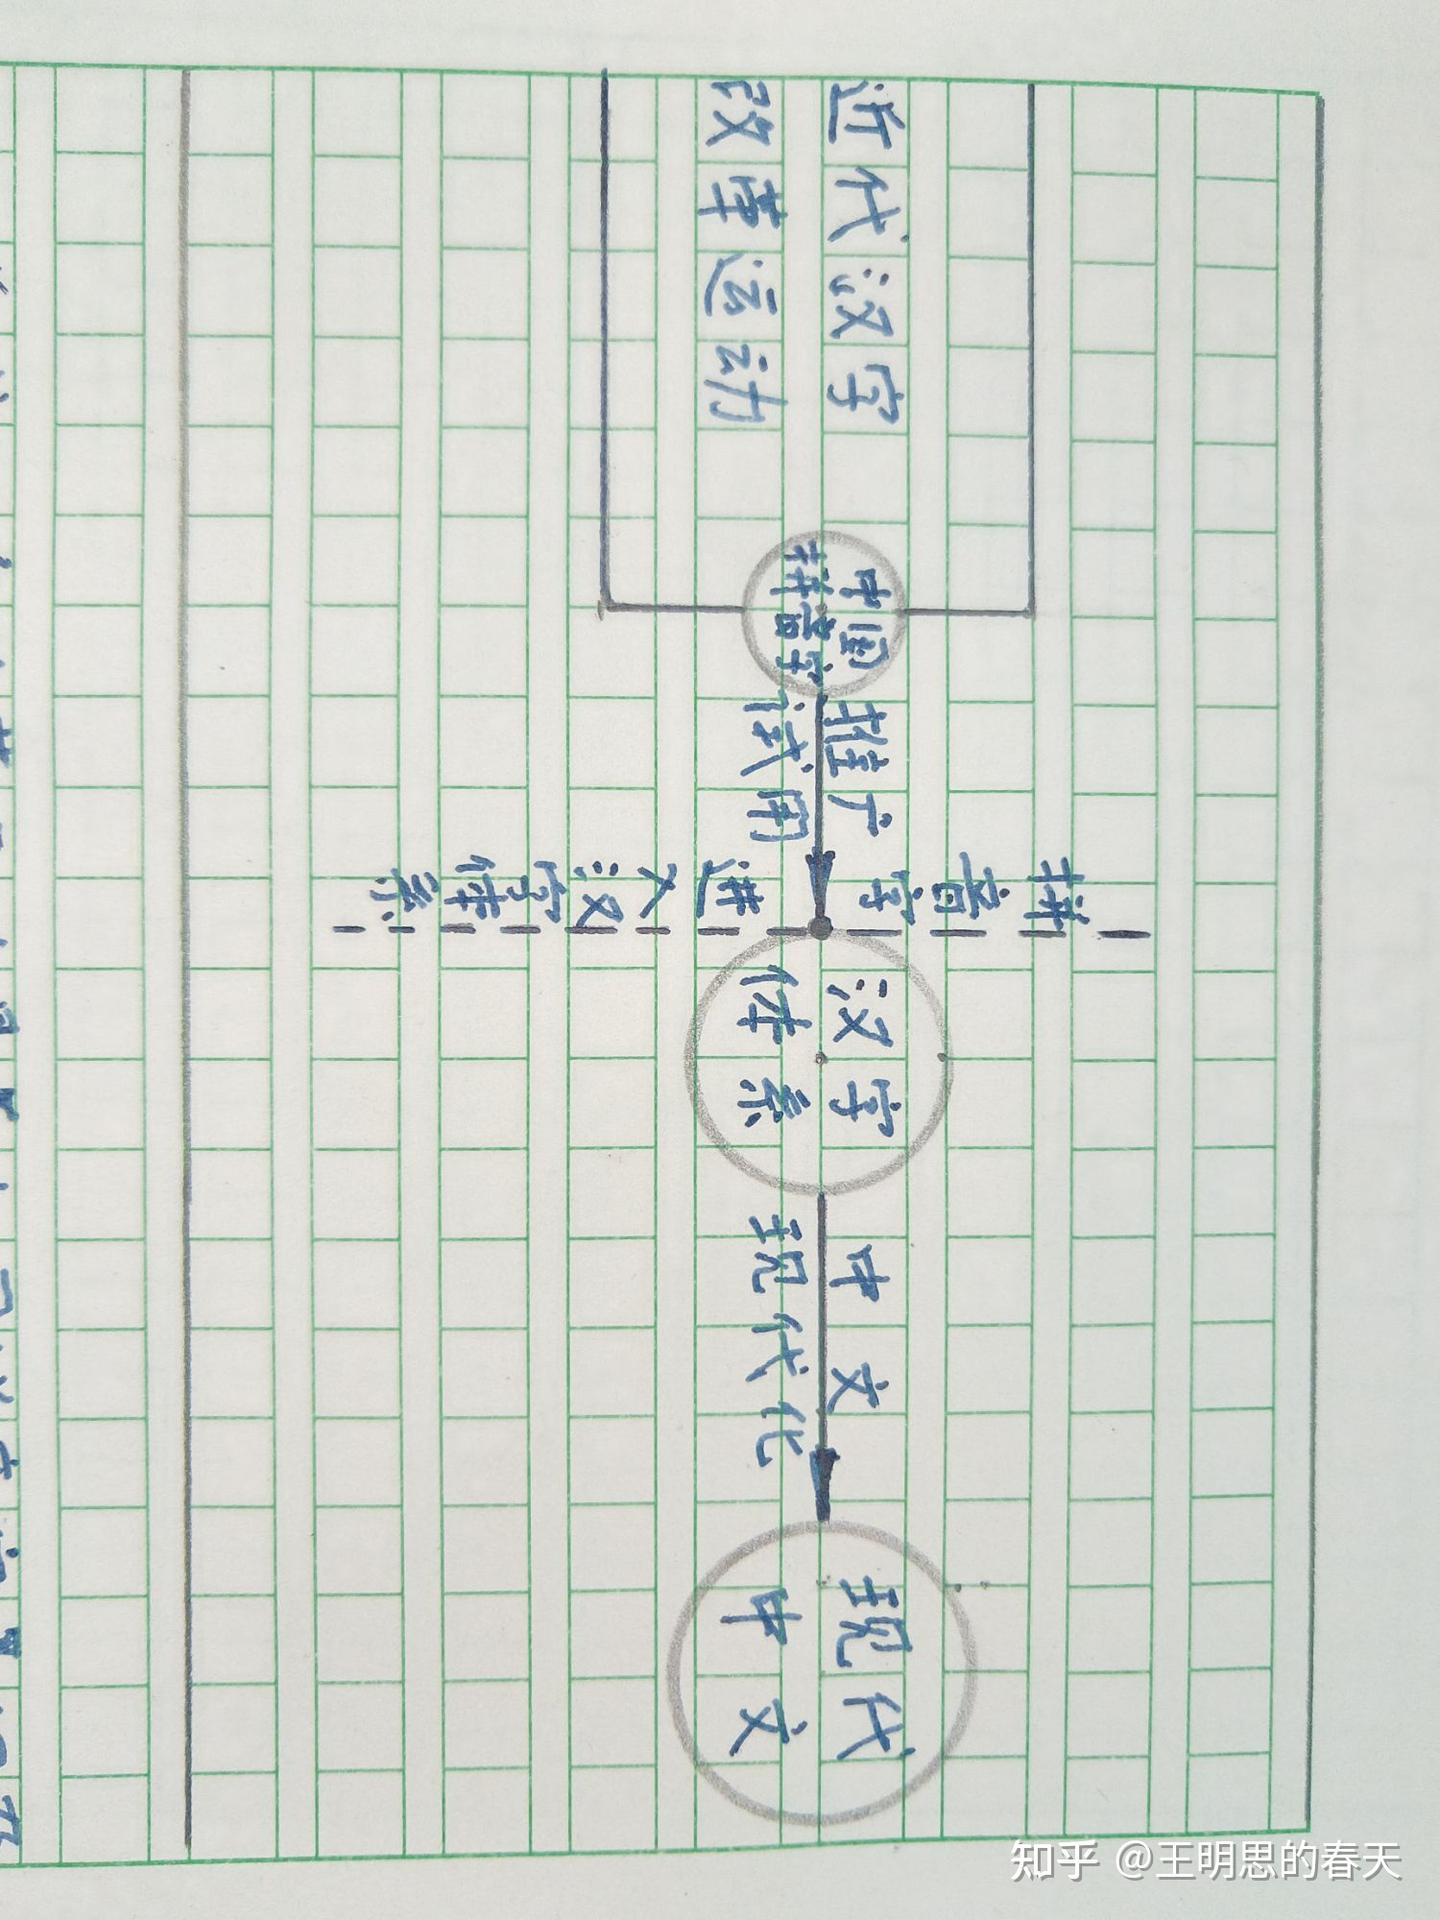 近代汉字
改革运动
中国
拼音字
推广
试用
拼音字进入汉字体系
汉字
体系
中文
现代化
现代
中文
知乎 @王明思的春天